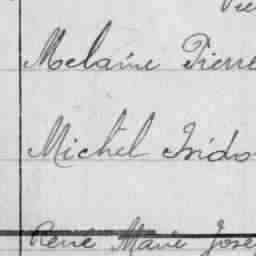 Melaine Pierre
Michel Isido
René Marie Jose